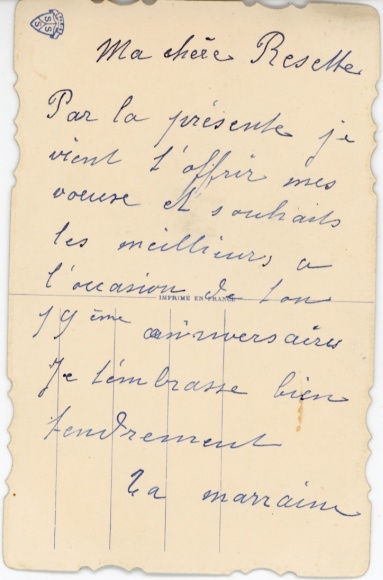 Ma chère Rosette
Par la présente je
vient t'offrir mes
voeuxe et souhaits
les meillieurs a
l'occasion de ton
IMPRIMÉ EN FRANCE
19ème anniversaires
Je t'embrasse bien
tendrement
Ta marraine